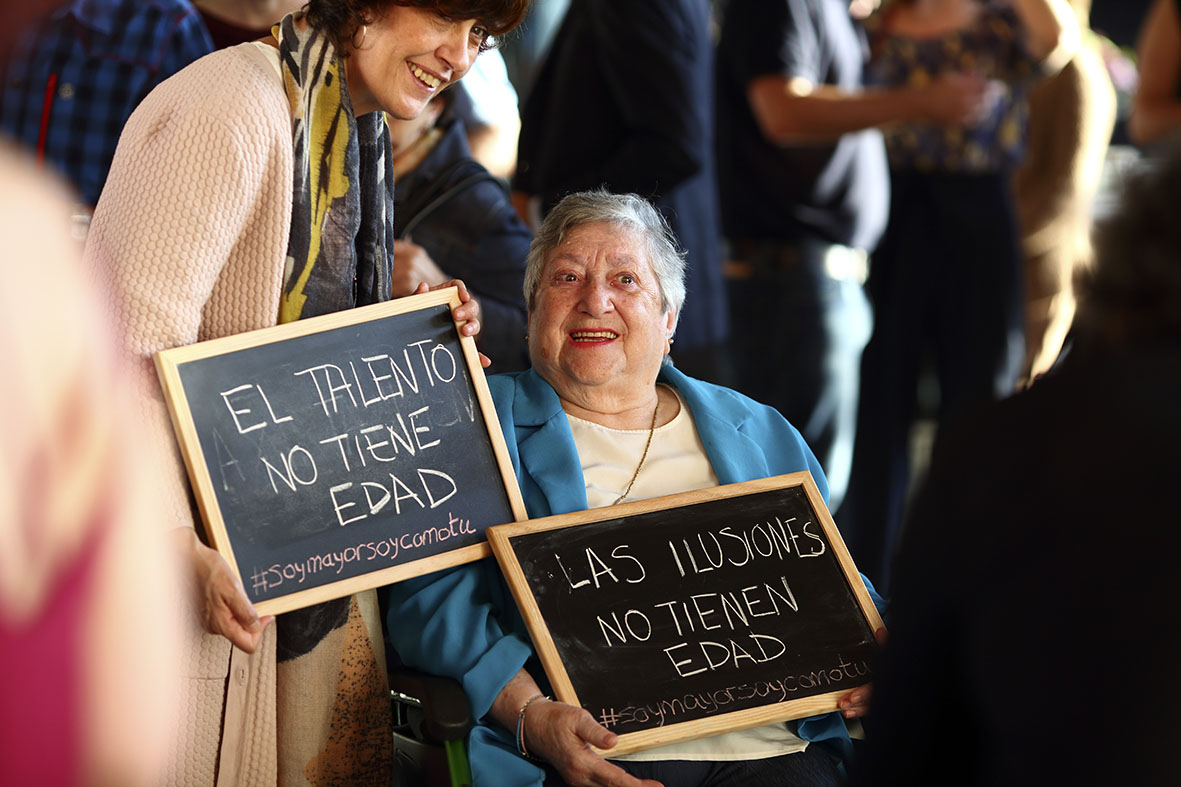 EL TALENTO
NO TIENE
EDAD
#soymayorsoycomotu
LAS ILUSIONES
NO TIENEN
EDAD
#soymayorsoycomotu